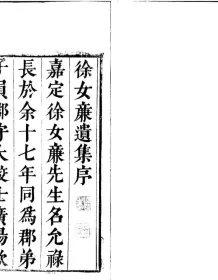 徐女廉遺集序
嘉定徐女廉先生名允祿
長於余十七年同為郡弟
子員郡守大校士廣場歘